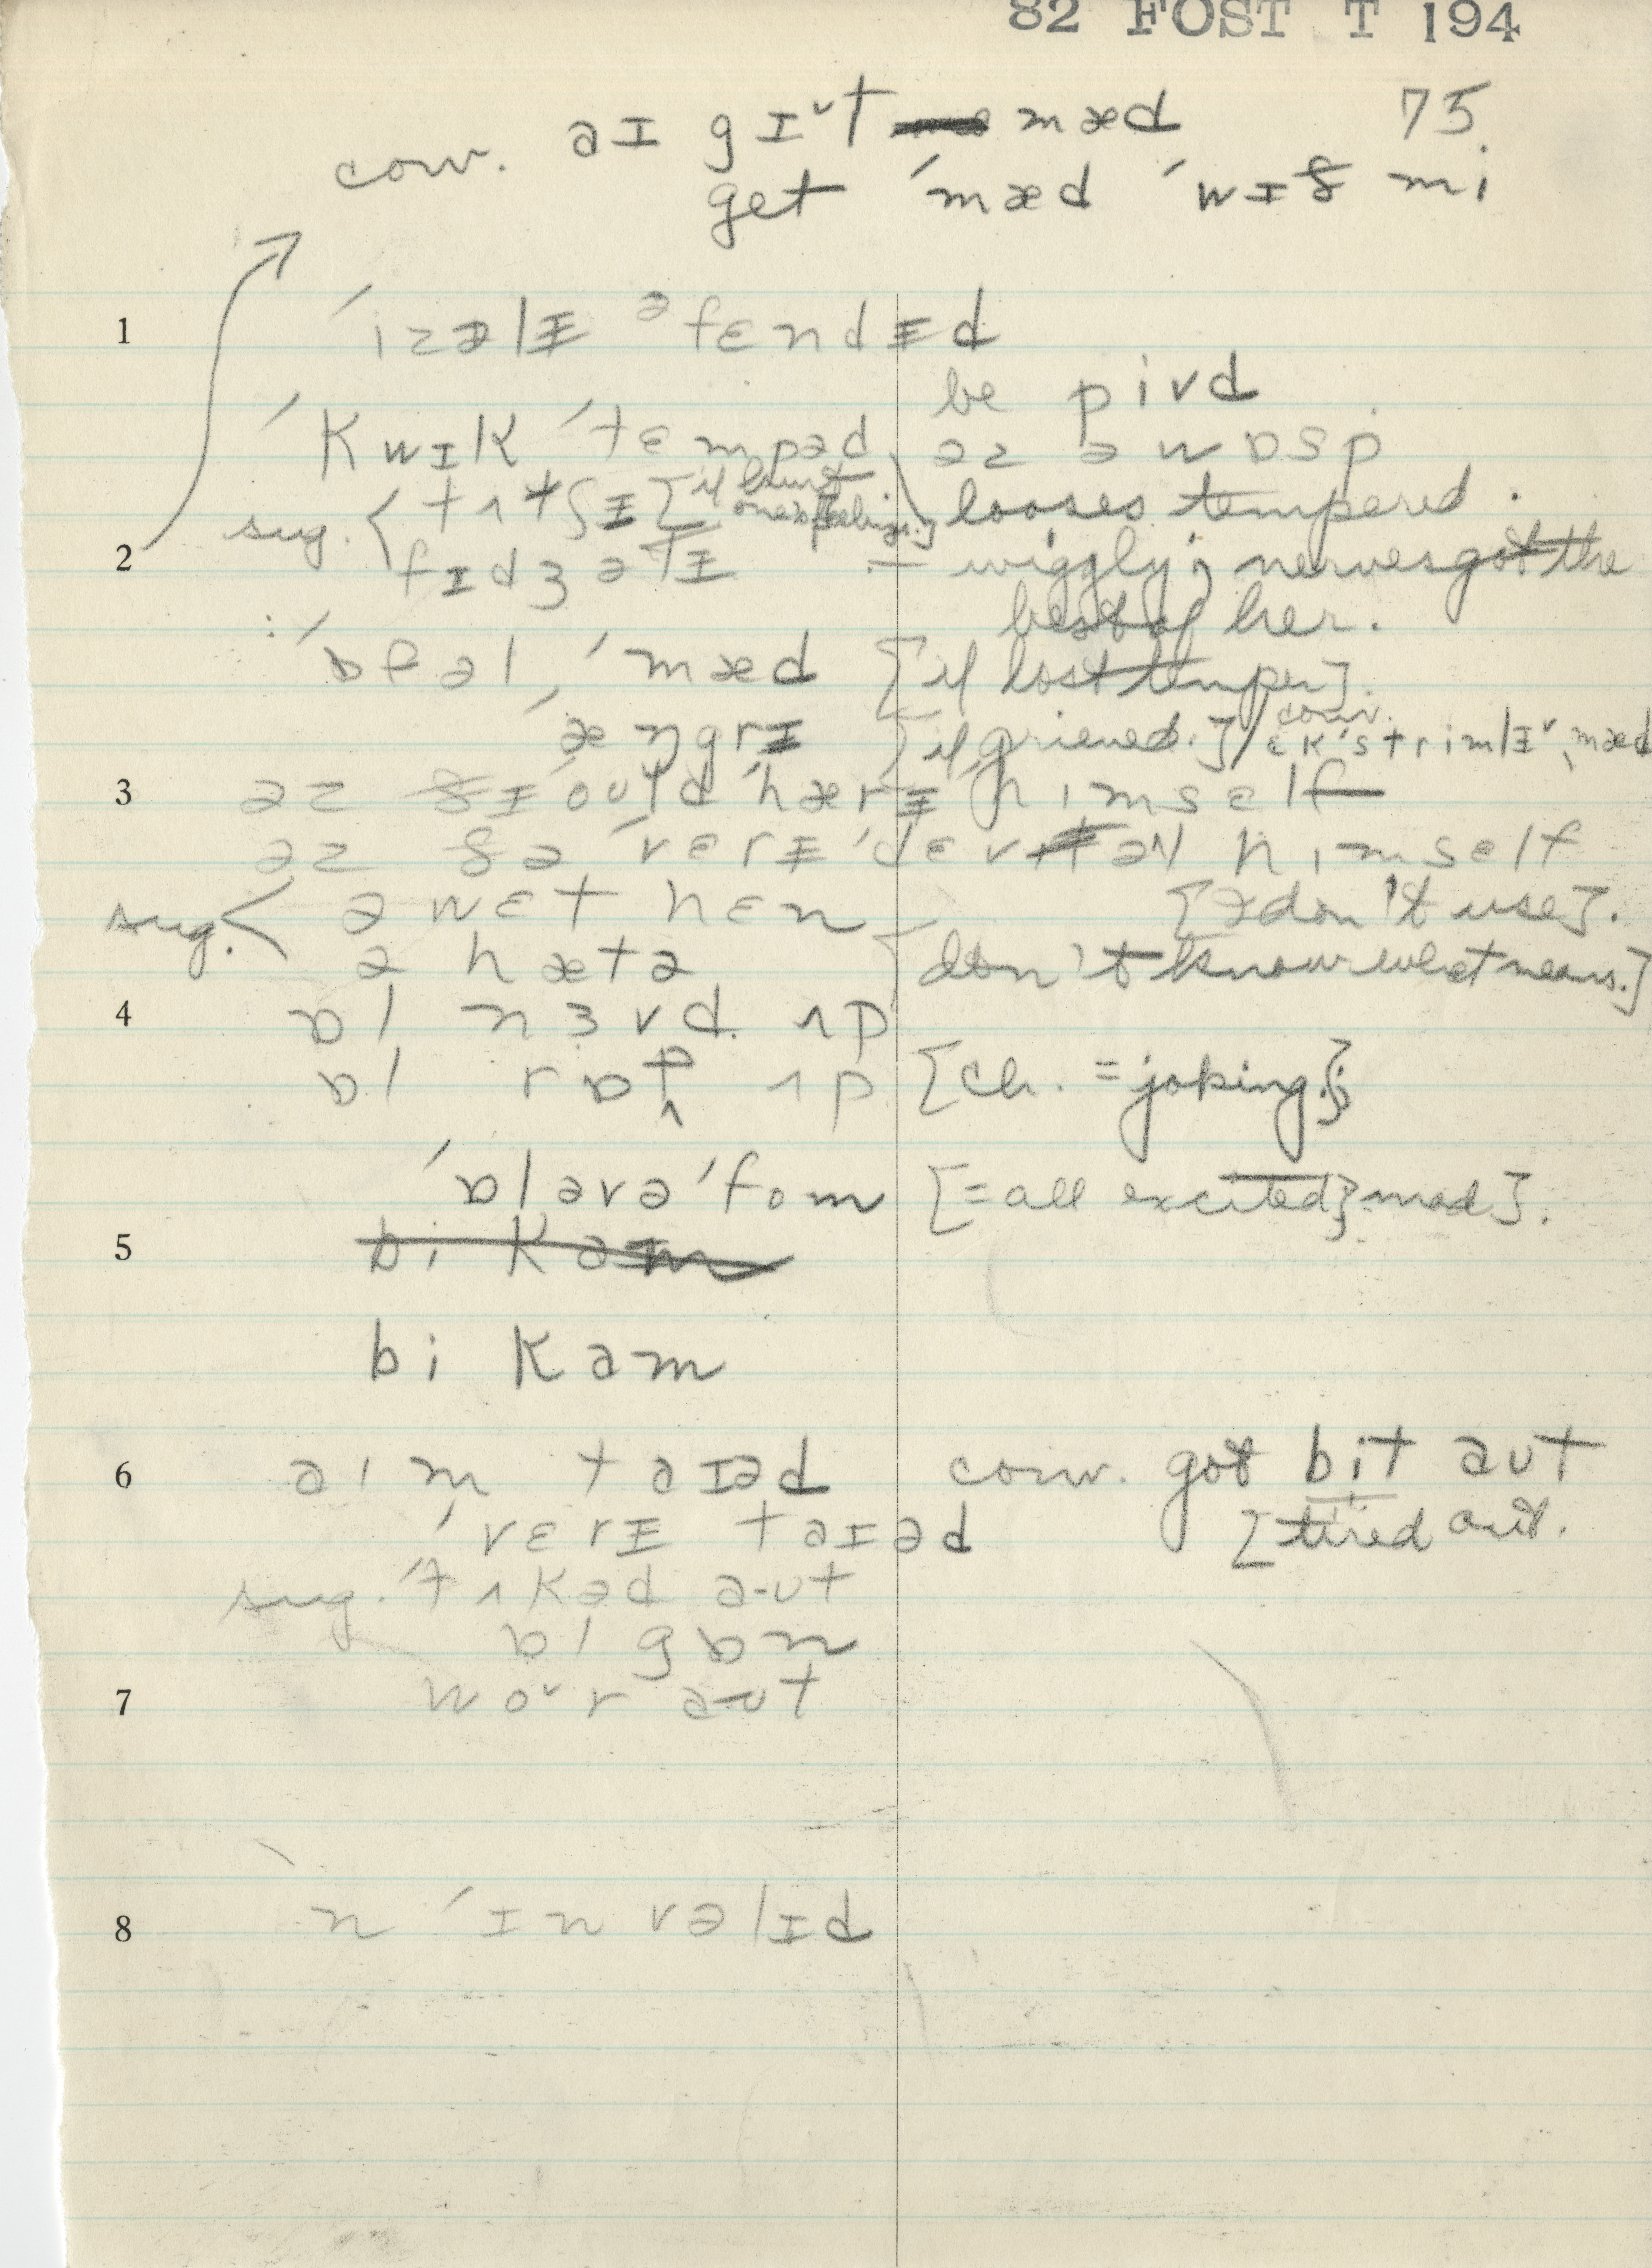 82 FOST T 194
75.
conv. aɪ gɪ˅t mæd
get ˈmæd ˈwɪð mi
1 ˈizəlɪ əfɛndɪd
be pivd
ˈkwɪk ˈtɛmpəd əz ə wɒsp
sug. tʌtʃɪ [if hurt one's feelings.] looses tempered.
2 fɪdʒətɪ = wiggly; nerves got the
best of her.
: ˈɒfəl, ˈmæd [if lost temper].
ˈæŋgrɪ [if grieved.] / conv. ɛkˈstrimlɪ˅ ˌmæd
3 əz ðɪ ould ˈhærɪ himself
əz ðə ˈvɛrɪ ˈdɛvəl himself
sug. ə wɛt hɛn [I don't use].
ə hætə [don't know what means.]
4 ɒl nɜvd ʌp
ɒl rɒp ʌp [ch. = joking];
ˈɒl əvə ˈfom [= all excited; mad].
5 bi kam
bi kam
6 aim taɪəd conv. got bit aut
ˈvɛrɪ taɪəd [tired out.
sug. ˈtʌkəd aut
ɒl gɒn
7 wo˅r aut
8 n ˈɪnvəlɪd